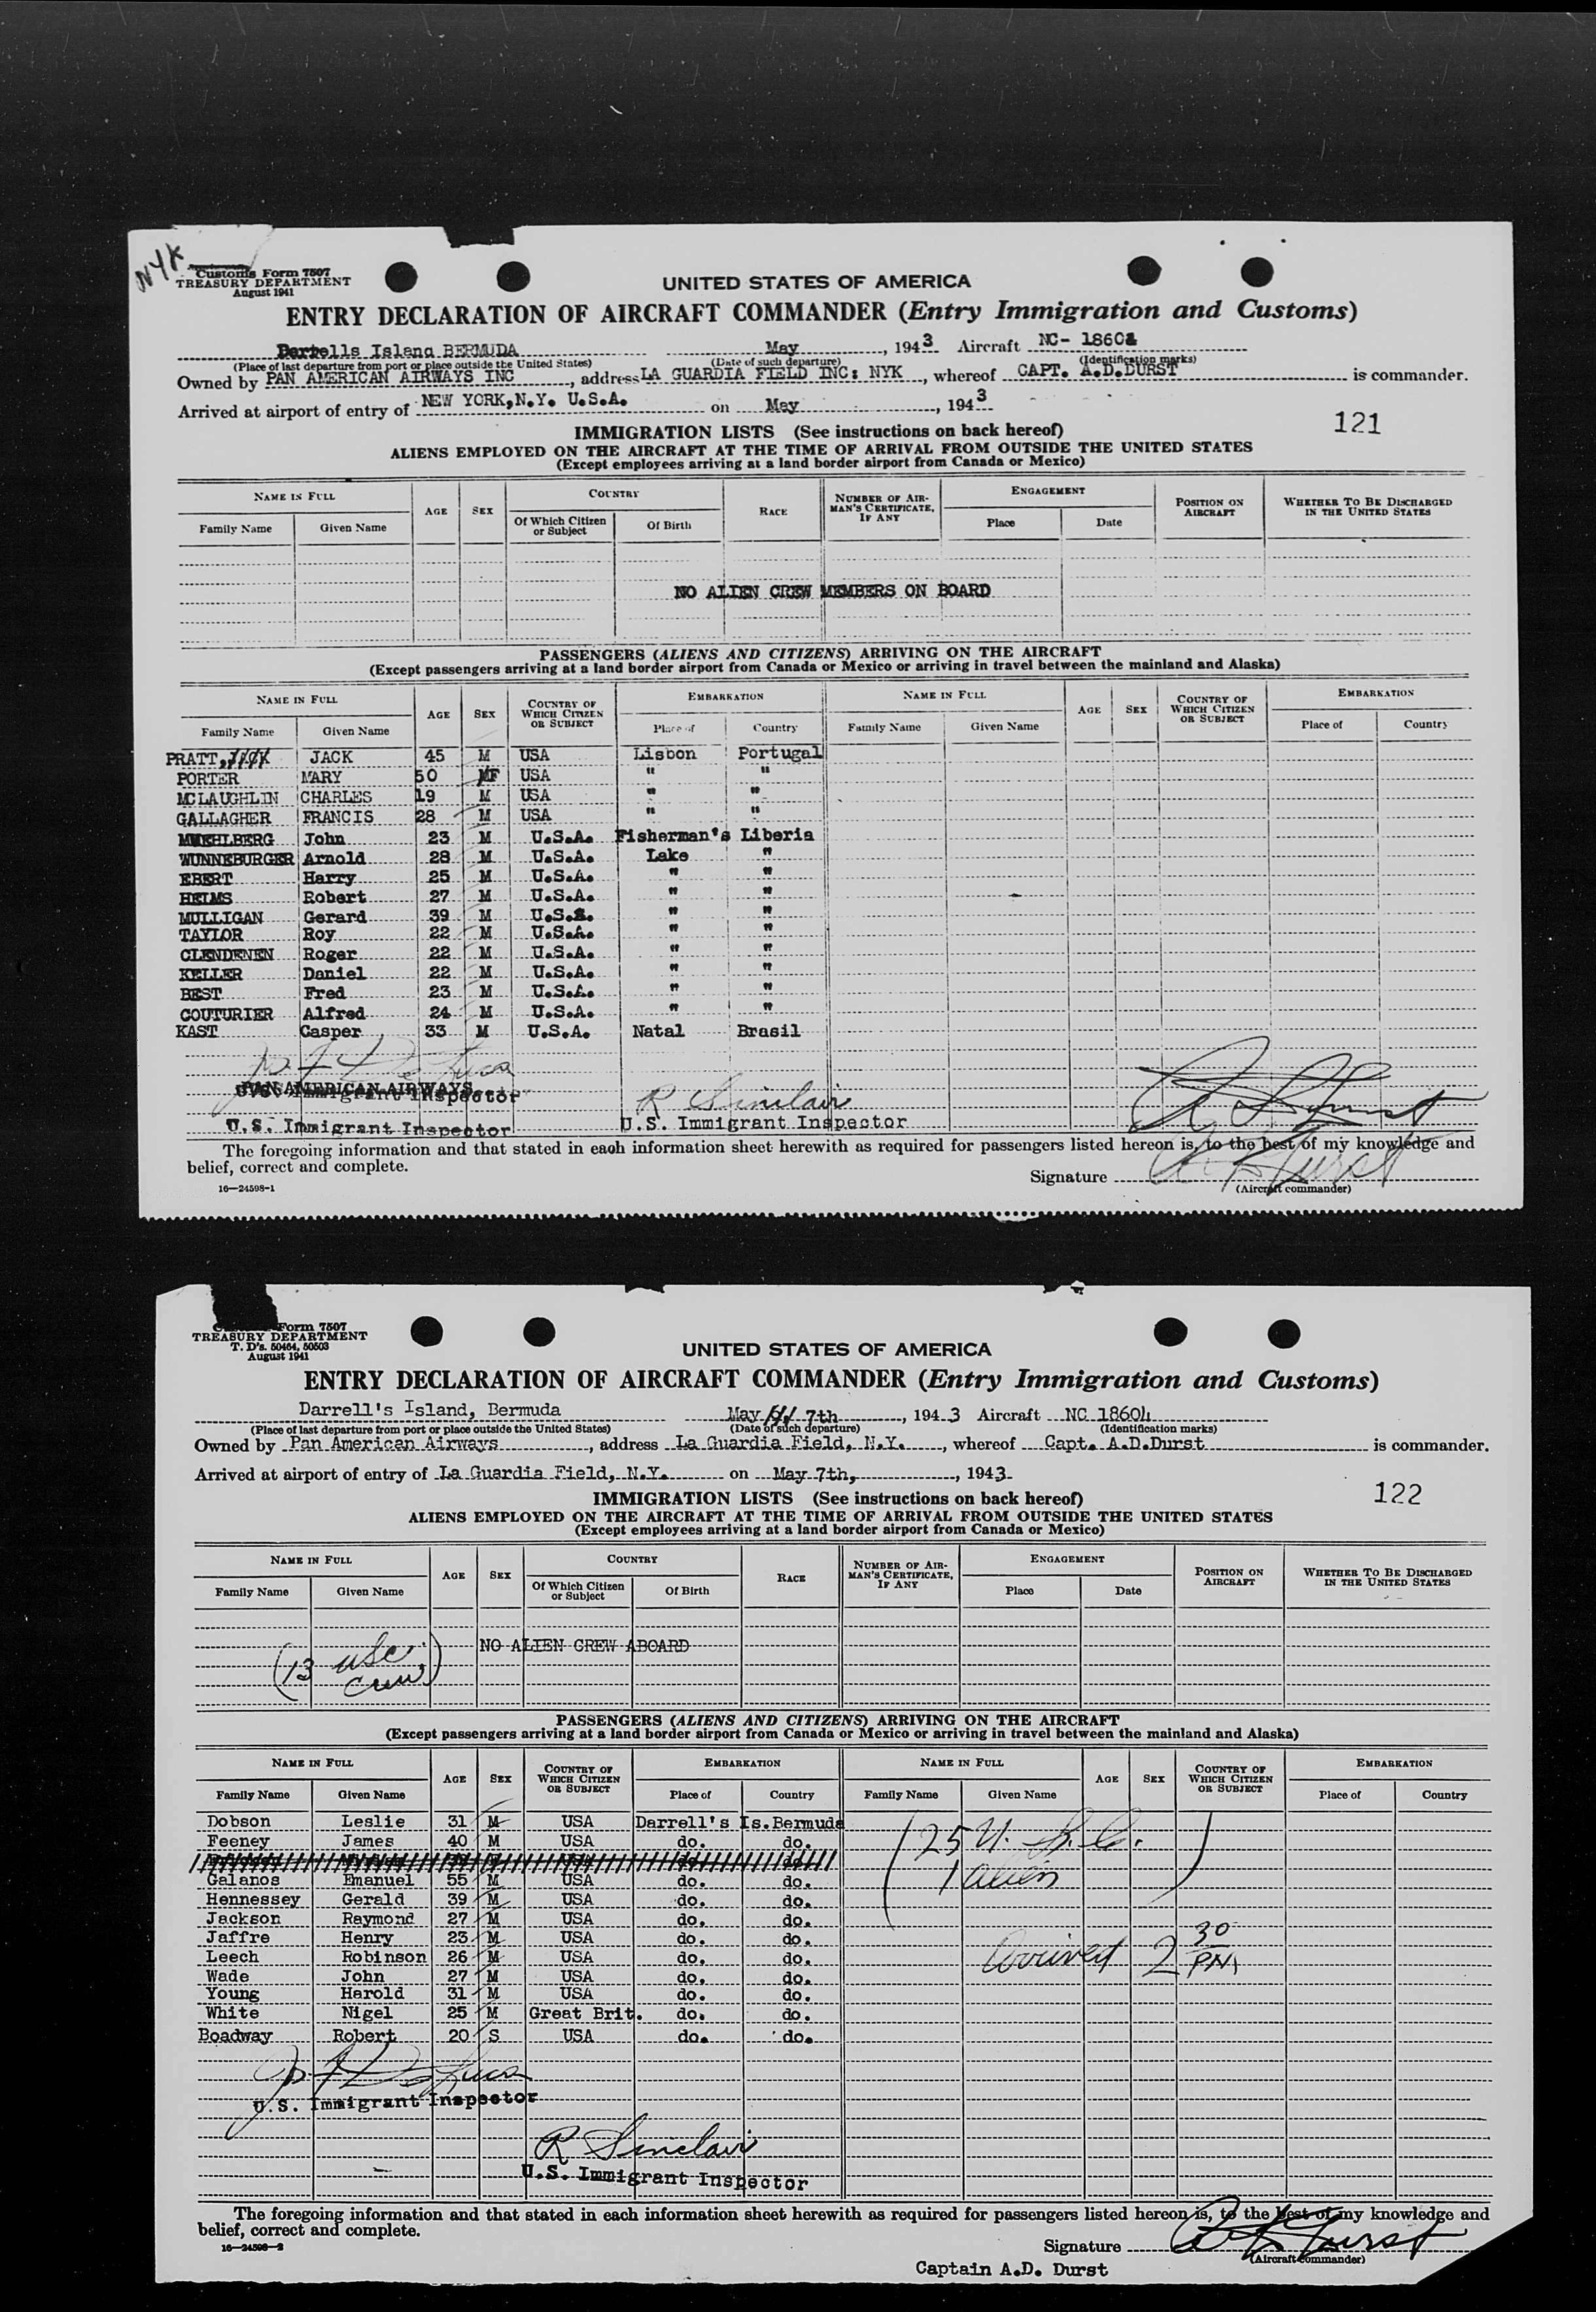 NYK
Customs Form 7507
TREASURY DEPARTMENT
August 1941
UNITED STATES OF AMERICA
ENTRY DECLARATION OF AIRCRAFT COMMANDER (Entry Immigration and Customs)
Darrells Island BERMUDA May , 1943 Aircraft NC- 18604
(Place of last departure from port or place outside the United States) (Date of such departure) (Identification marks)
Owned by PAN AMERICAN AIRWAYS INC , address LA GUARDIA FIELD INC: NYK , whereof CAPT. A.D.DURST is commander.
Arrived at airport of entry of NEW YORK,N.Y. U.S.A. on May , 1943
121
IMMIGRATION LISTS (See instructions on back hereof)
ALIENS EMPLOYED ON THE AIRCRAFT AT THE TIME OF ARRIVAL FROM OUTSIDE THE UNITED STATES
(Except employees arriving at a land border airport from Canada or Mexico)
NAME IN FULL AGE SEX COUNTRY RACE NUMBER OF AIRMAN'S CERTIFICATE, IF ANY ENGAGEMENT POSITION ON AIRCRAFT WHETHER TO BE DISCHARGED IN THE UNITED STATES
Family Name Given Name Of Which Citizen or Subject Of Birth Place Date
NO ALIEN CREW MEMBERS ON BOARD
PASSENGERS (ALIENS AND CITIZENS) ARRIVING ON THE AIRCRAFT
(Except passengers arriving at a land border airport from Canada or Mexico or arriving in travel between the mainland and Alaska)
NAME IN FULL AGE SEX COUNTRY OF WHICH CITIZEN OR SUBJECT EMBARKATION NAME IN FULL AGE SEX COUNTRY OF WHICH CITIZEN OR SUBJECT EMBARKATION
Family Name Given Name Place of Country Family Name Given Name Place of Country
PRATT, JACK JACK 45 M USA Lisbon Portugal
PORTER MARY 50 MF USA " "
MCLAUGHLIN CHARLES 19 M USA " "
GALLAGHER FRANCIS 28 M USA " "
MUEHLBERG John 23 M U.S.A. Fisherman's Liberia
WUNNEBURGER Arnold 28 M U.S.A. Lake "
EBERT Harry 25 M U.S.A. " "
HEIMS Robert 27 M U.S.A. " "
MULLIGAN Gerard 39 M U.S.A. " "
TAYLOR Roy 22 M U.S.A. " "
CLENDENEN Roger 22 M U.S.A. " "
KELLER Daniel 22 M U.S.A. " "
BEST Fred 23 M U.S.A. " "
COUTURIER Alfred 24 M U.S.A. " "
KAST Casper 33 M U.S.A. Natal Brasil
PAN AMERICAN AIRWAYS
U.S. Immigrant Inspector
R Sinclair
U.S. Immigrant Inspector U.S. Immigrant Inspector
A D Durst
The foregoing information and that stated in each information sheet herewith as required for passengers listed hereon is, to the best of my knowledge and
belief, correct and complete.
Signature A D Durst
16—24598-1 (Aircraft commander)
Form 7507
TREASURY DEPARTMENT
T. D's. 50464, 50503
August 1941
UNITED STATES OF AMERICA
ENTRY DECLARATION OF AIRCRAFT COMMANDER (Entry Immigration and Customs)
Darrell's Island, Bermuda May 7th , 1943 Aircraft NC 18604
(Place of last departure from port or place outside the United States) (Date of such departure) (Identification marks)
Owned by Pan American Airways , address La Guardia Field, N.Y. , whereof Capt. A.D.Durst is commander.
Arrived at airport of entry of La Guardia Field, N.Y. on May 7th, , 1943
122
IMMIGRATION LISTS (See instructions on back hereof)
ALIENS EMPLOYED ON THE AIRCRAFT AT THE TIME OF ARRIVAL FROM OUTSIDE THE UNITED STATES
(Except employees arriving at a land border airport from Canada or Mexico)
NAME IN FULL AGE SEX COUNTRY RACE NUMBER OF AIRMAN'S CERTIFICATE, IF ANY ENGAGEMENT POSITION ON AIRCRAFT WHETHER TO BE DISCHARGED IN THE UNITED STATES
Family Name Given Name Of Which Citizen or Subject Of Birth Place Date
NO ALIEN CREW ABOARD
(13 USC
Crew)
PASSENGERS (ALIENS AND CITIZENS) ARRIVING ON THE AIRCRAFT
(Except passengers arriving at a land border airport from Canada or Mexico or arriving in travel between the mainland and Alaska)
NAME IN FULL AGE SEX COUNTRY OF WHICH CITIZEN OR SUBJECT EMBARKATION NAME IN FULL AGE SEX COUNTRY OF WHICH CITIZEN OR SUBJECT EMBARKATION
Family Name Given Name Place of Country Family Name Given Name Place of Country
Dobson Leslie 31 M USA Darrell's Is. Bermuda
Feeney James 40 M USA do. do. (25 U.S.C.
Galanos Emanuel 55 M USA do. do. 1 alien)
Hennessey Gerald 39 M USA do. do.
Jackson Raymond 27 M USA do. do.
Jaffre Henry 23 M USA do. do.
Leech Robinson 26 M USA do. do. Arrived 2 30 PM
Wade John 27 M USA do. do.
Young Harold 31 M USA do. do.
White Nigel 25 M Great Brit. do. do.
Boadway Robert 20 S USA do. do.
U.S. Immigrant Inspector
R Sinclair
U.S. Immigrant Inspector
The foregoing information and that stated in each information sheet herewith as required for passengers listed hereon is, to the best of my knowledge and
belief, correct and complete.
16—24598-2
Signature A D Durst
(Aircraft commander)
Captain A.D. Durst